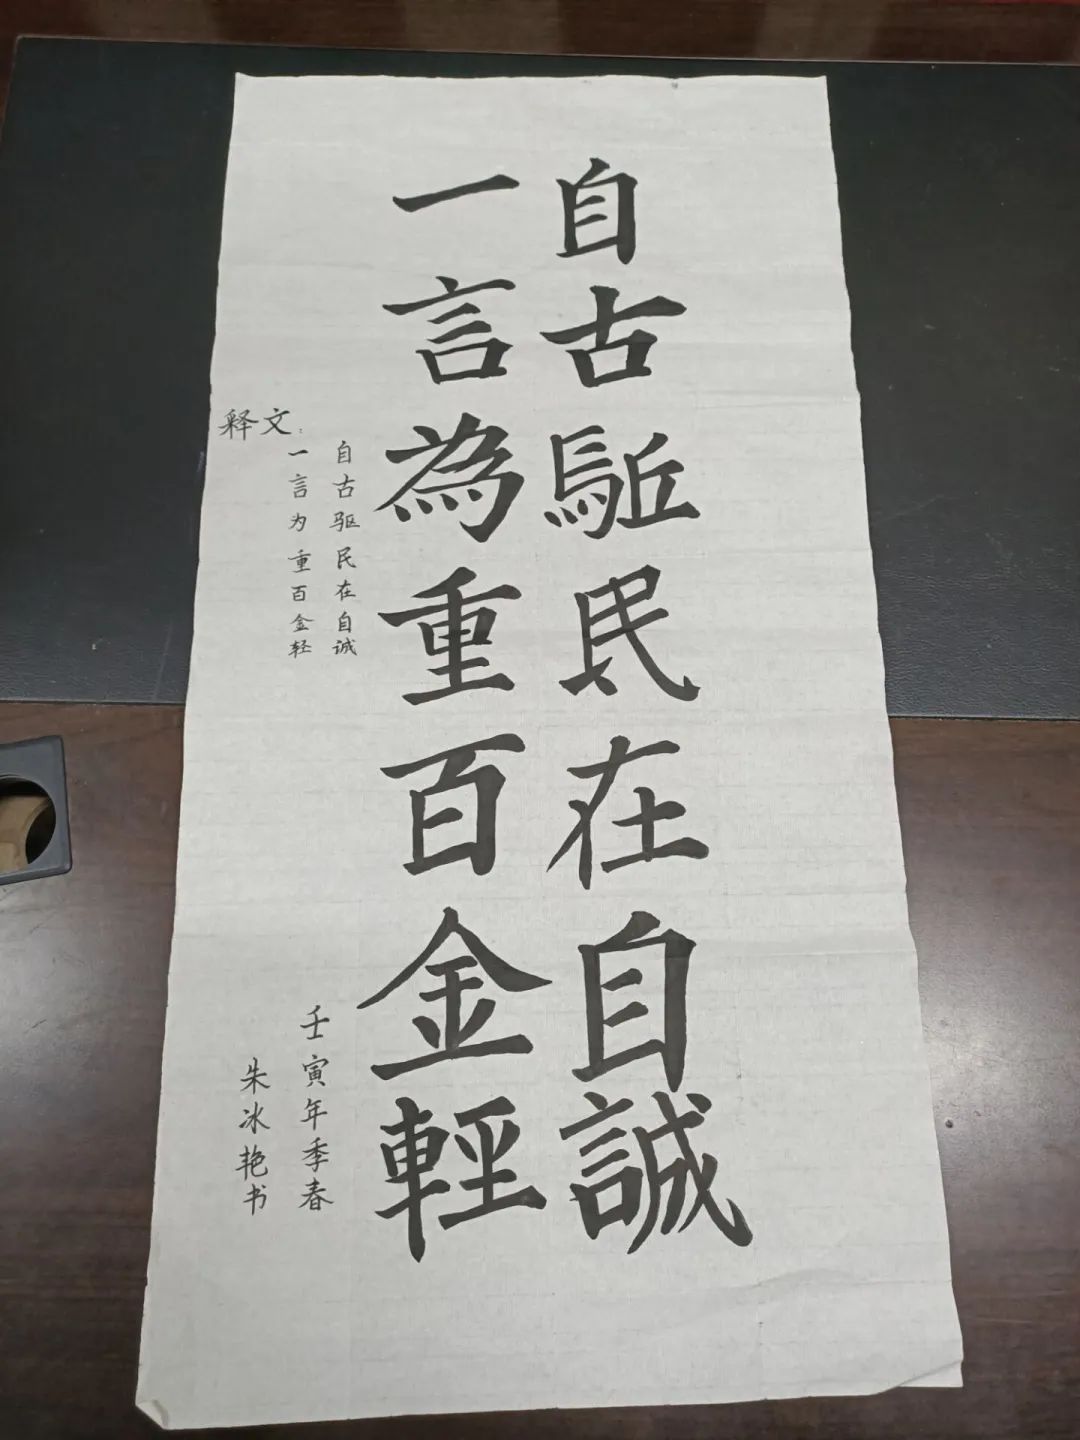 自古駈民在自誠
一言為重百金輕
释文：
自古驱民在自诚
一言为重百金轻
壬寅年季春
朱冰艳书